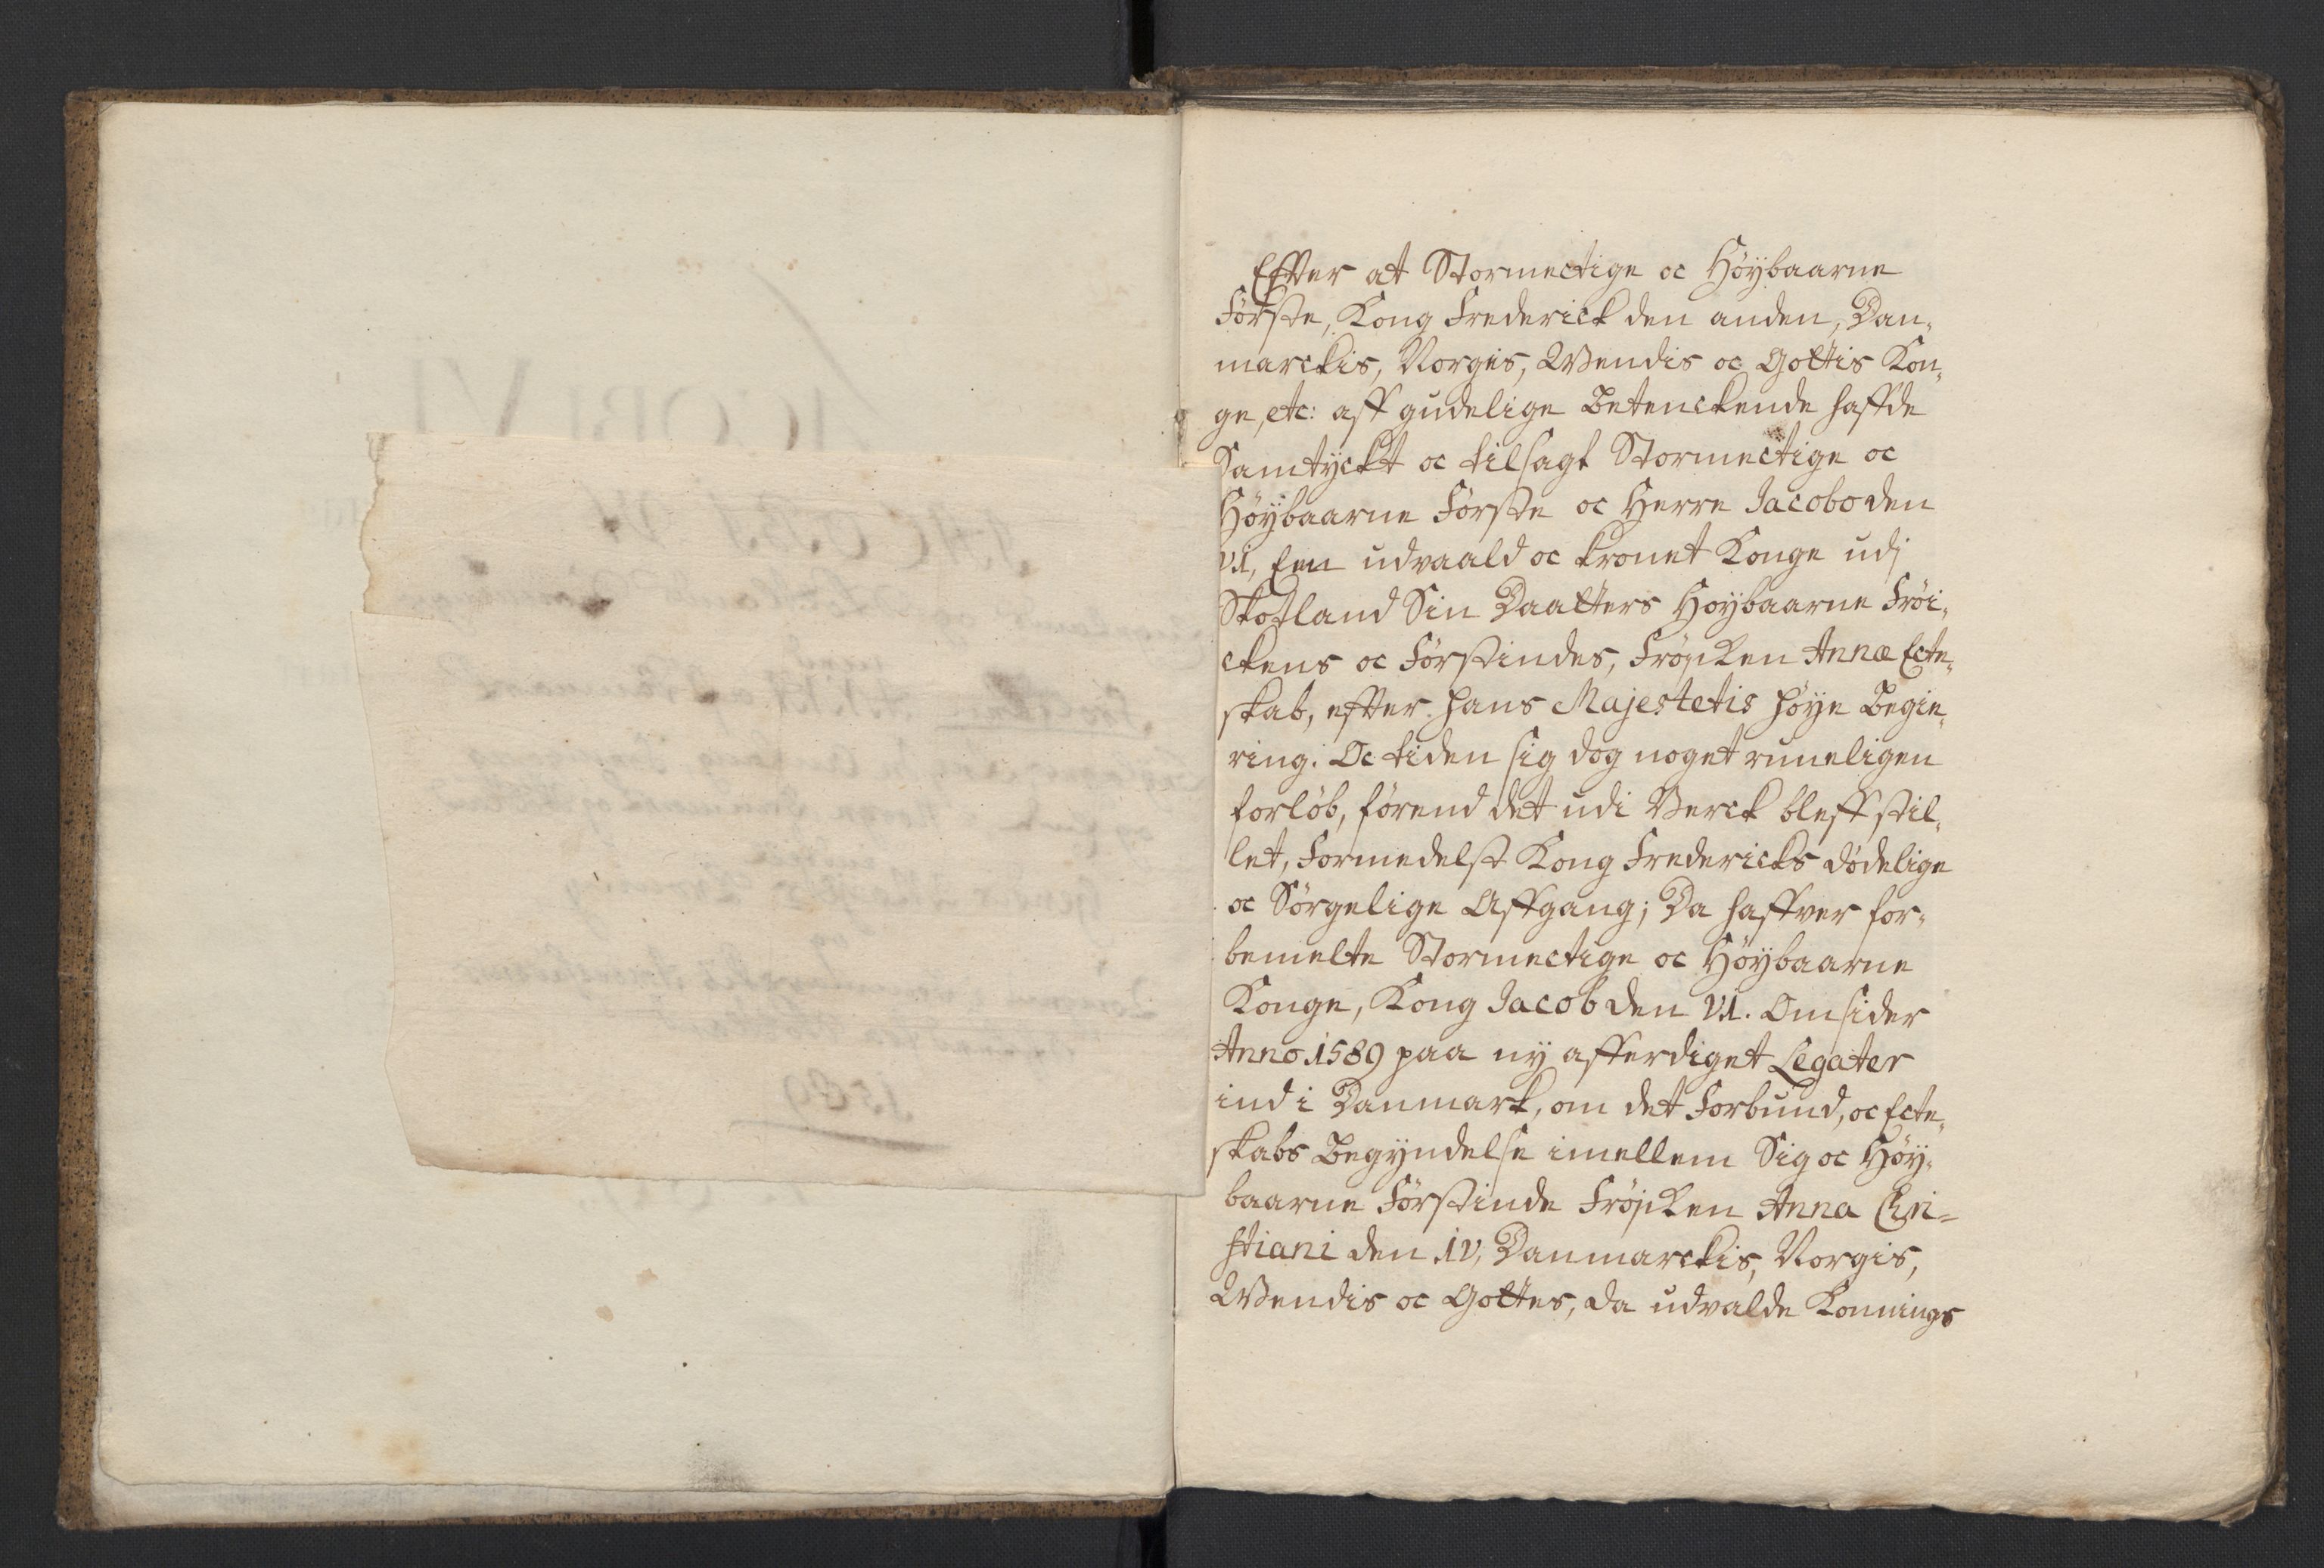 Effter at Stormectige oc Höybaarne
Förste, Kong Frederick den anden, Dan-
marckis, Norgis, Wendis oc Gottis Kon-
ge, etc: aff gudelige Betenckende haffde
Samtyckt oc tilsagt Stormectige oc
Höybaarne Förste oc Herre Jacobo den
VI, Een udvaald oc kronet Konge udi
Skotland Sin Daatters Hoybaarne Fröi-
ckens oc Förstindes, Fröicken Annæ Ecte-
skab, effter hans Majestetis höye Begie-
ring: Oc tiden sig dog noget rumeligen
forlöb, förend det udi Verck bleff stil-
let, Formedelst Kong Fredericks dödelige
oc Sörgelige Affgang; Da haffver for-
bemelte Stormectige oc Höybaarne
Konge, Kong Jacob den VI. Omsider
Anno 1589 paa ny afferdiget Legater
ind i Danmark, om det Forbund, oc Ecte-
skabs Begyndelse imellem Sig oc Höy-
baarne Förstinde Fröicken Anna Chri=
stiani den IV, Danmarckis, Norgis,
Wendis oc Gottes, da udvalde Konnings